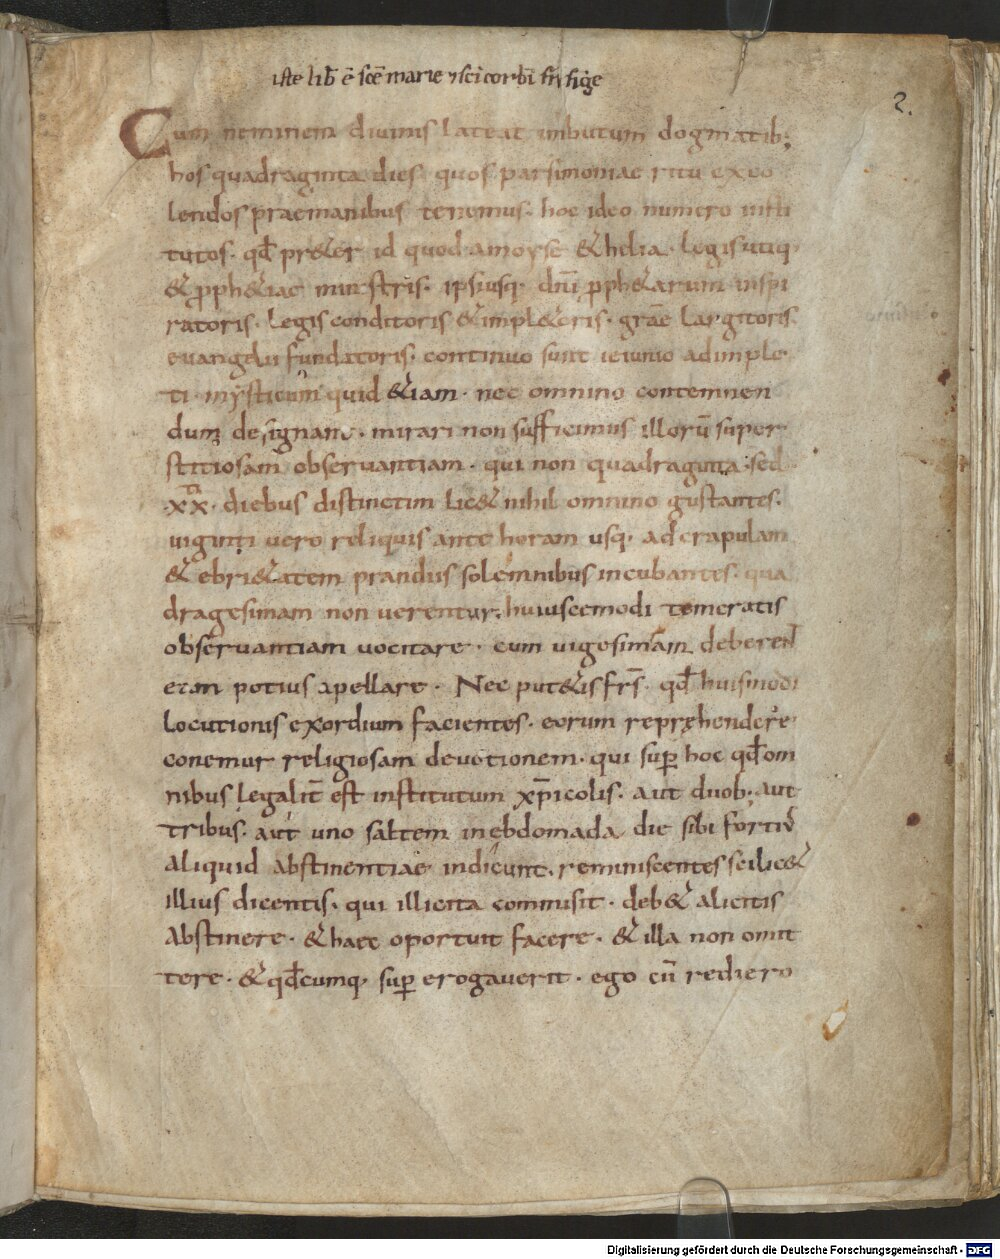 iste lib̄ ē sc̄e marie ⁊ sci corb̄i fr̄isiġe
2.
Cum neminem diuinis lateat imbutum dogmatib;
hos quadraginta dies quos parsimoniae ritu exco
lendos praemanibus tenemus. hoc ideo numero insti
tutos. qđ pr&er id quod amoyse & helia. legis utiq;
& pph&iae ministris. ipsiusq; dn̄i pph&arum inspi
ratoris. legis conditoris & impl&oris. grāe largitoris
euangelii fundatoris. continuo sunt ieiunio adimple
ti. mysticum quid &iam. nec omnino contemnen
dum designant. mirari non sufficimus illorū super
stitiosam obseruantiam. qui non quadraginta. sed
.xx. diebus distinctim lic& nihil omnino gustantes.
uiginti uero reliquis ante horam usq; ad crapulam
& ebri&atem prandiis solemnibus incubantes. qua
dragesimam non uerentur. huiuscemodi temeratis
obseruantiam uocitare. cum uigesimam deberent
eam potius apellare. Nec put&is fr̄s. qđ huismodi
locutionis exordium facientes. eorum repręhendere
conemur religiosam deuotionem. qui sup hoc qđ om
nibus legalit̄ est institutum xp̄icolis. aut duob; aut
tribus. aut uno saltem in ebdomada die sibi fortit̄
aliquid abstinentiae indicunt. reminiscentes scilic&
illius dicentis. qui illicita commisit. deb& alicitis
abstinere. & haec oportuit facere. & illa non omit
tere. & qđcumq; sup erogauerit. ego cū rediero
Digitalisierung gefördert durch die Deutsche Forschungsgemeinschaft - DFG